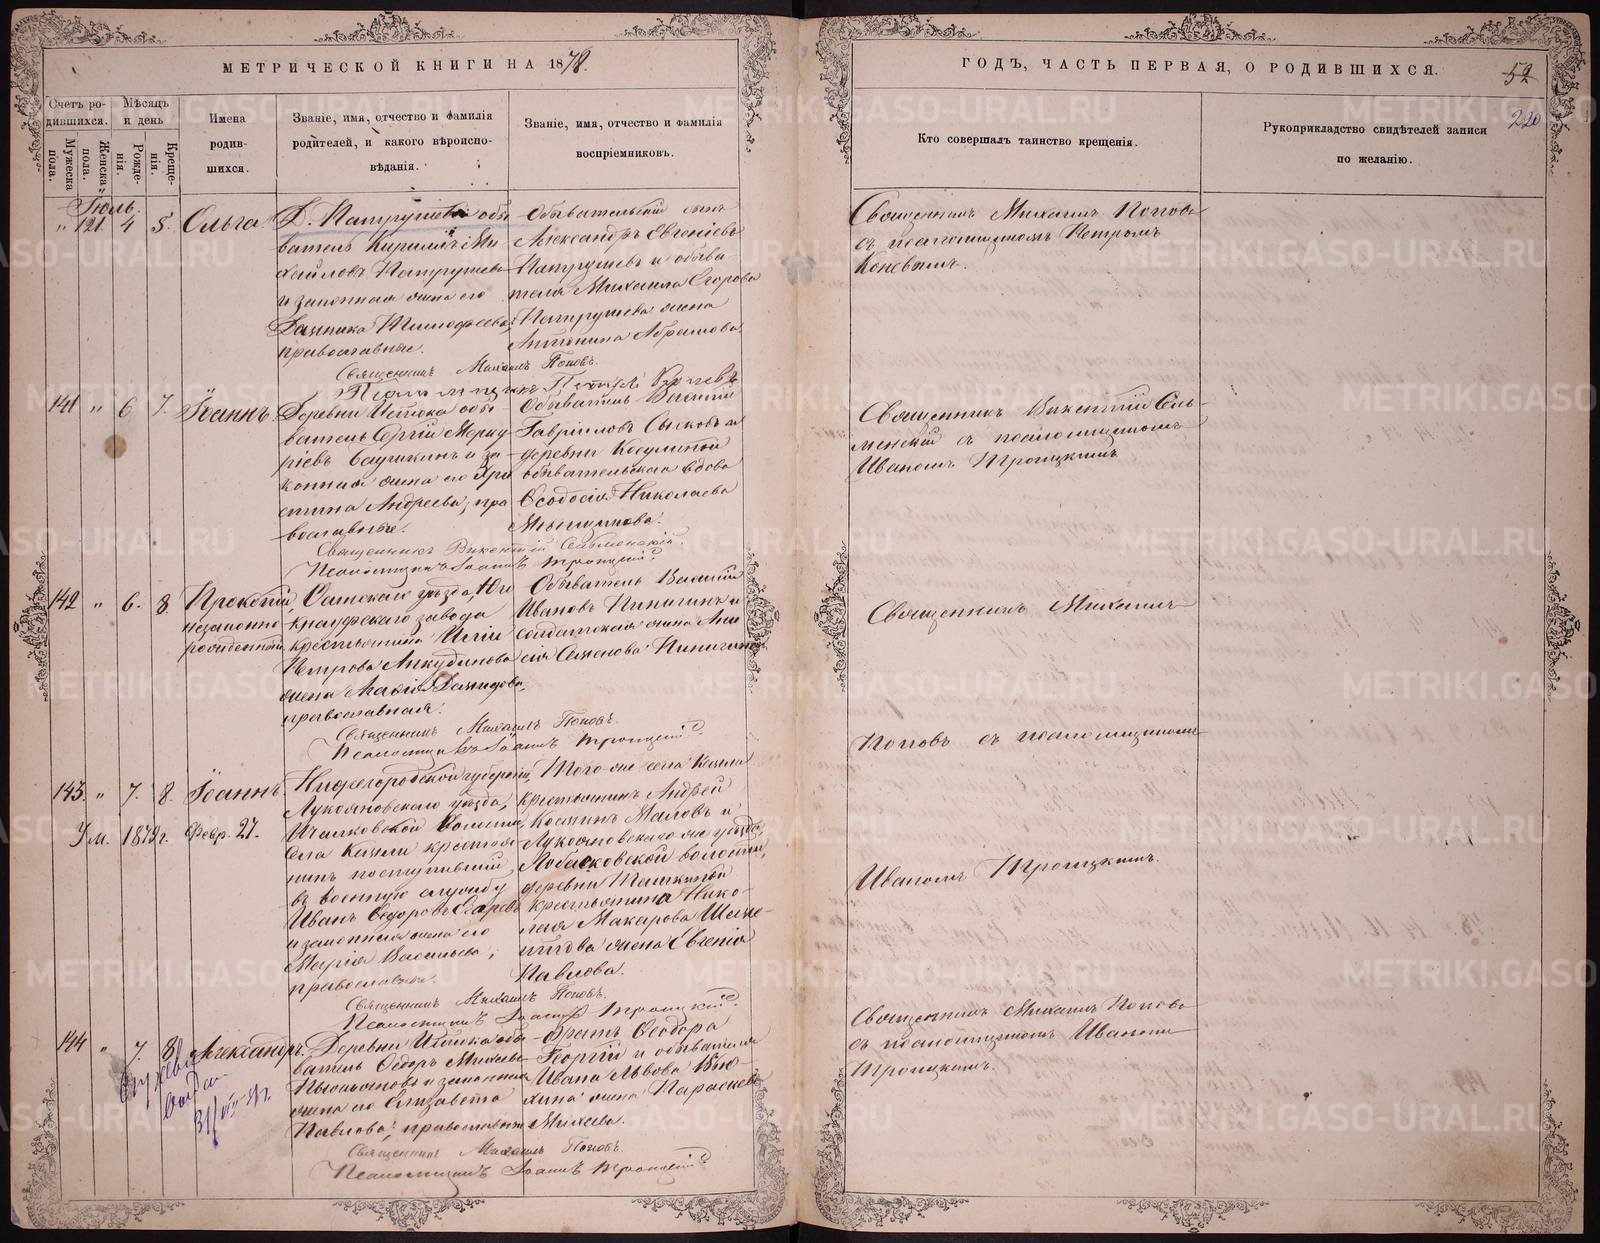 МЕТРИЧЕСКОЙ КНИГИ НА 1878.
ГОДЪ, ЧАСТЬ ПЕРВАЯ, О РОДИВШИХСЯ.
52
220
Счетъ ро-
дившихся.
Мужеска пола.
Женска пола.
Мѣсяцъ
и день
Рожде-
нія.
Креще-
нія.
Имена
родив-
шихся.
Званіе, имя, отчество и фамилія
родителей, и какого вѣроиспо-
вѣданія.
Званіе, имя, отчество и фамилія
воспріемниковъ.
Кто совершалъ таинство крещенія.
Рукоприкладство свидѣтелей записи
по желанію.
Іюль.
" 121. 4 5. Ольга.
Д. Патрушева обы
ватель Кириллъ Ми
хайловъ Патрушевъ
и законная жена его
Тимофеева;
православные.
Обывательскій сынъ
Александръ Евгеніевъ
Патрушевъ и обыва
теля Михаила Егорова
Патрушева жена
Антонина Абрамова
Священникъ Михаилъ Поповъ
съ псаломщикомъ Петромъ
Коневымъ.
Священникъ Михаилъ Поповъ.
Псаломщикъ Петръ
141 " 6 7. Іоаннъ.
Деревни Истока обы-
ватель Сергій Мерку
ріевъ и за-
конная жена его Хри
стина Андреева; пра
вославные.
Обыватель Василій
Гавріиловъ и
деревни Косулиной
обывательская вдова
Ѳеодосія Николаева
Священникъ Викентій Сель-
менскій съ псаломщикомъ
Иваномъ Троицкимъ
Священникъ Викентій Сельменскій.
Псаломщикъ Іоаннъ Троицкій
142 " 6. 8 Прокопій,
незаконно
рожденный
Осинскаго уѣзда, Юго
кнауфскаго завода
крестьянина
Петрова Анкудинова
жена
православная.
Обыватель Василій
Ивановъ Пинигинъ и
солдатская жена
Семенова Пинигина
Священникъ Михаилъ
Поповъ съ псаломщикомъ
Иваномъ Троицкимъ.
Священникъ Михаилъ Поповъ.
Псаломщикъ Іоаннъ Троицкій
143. " 7. 8. Іоаннъ.
Ум. Февр. 27.
Нижегородской губерніи,
Лукояновскаго уѣзда,
Ичалковской волости,
села Кемли крестья
нинъ поступившій
въ военную службу
Иванъ Ѳедоровъ
и законная жена его
Марія Васильева;
православные.
Того же села Кемли
крестьянинъ Андрей
Косминъ Маловъ и
Лукояновскаго же уѣзда,
волости,
деревни
крестьянина Нико-
лая Макарова
жена Евгенія
Павлова.
Священникъ Михаилъ Поповъ.
Псаломщикъ Іоаннъ Троицкій
144 " 7. 8 Александръ.
Деревни Истока обы-
ватель Ѳедоръ Михѣевъ
и законная
жена его Елизавета
Павлова; православные
братъ Ѳеодора
Георгій и обывателя
Ивана Львова
жена Параскева
Михеева.
Священникъ Михаилъ Поповъ
съ псаломщикомъ Иваномъ
Троицкимъ.
Священникъ Михаилъ Поповъ.
Псаломщикъ Іоаннъ Троицкій
METRIKI.GASO-URAL.RU